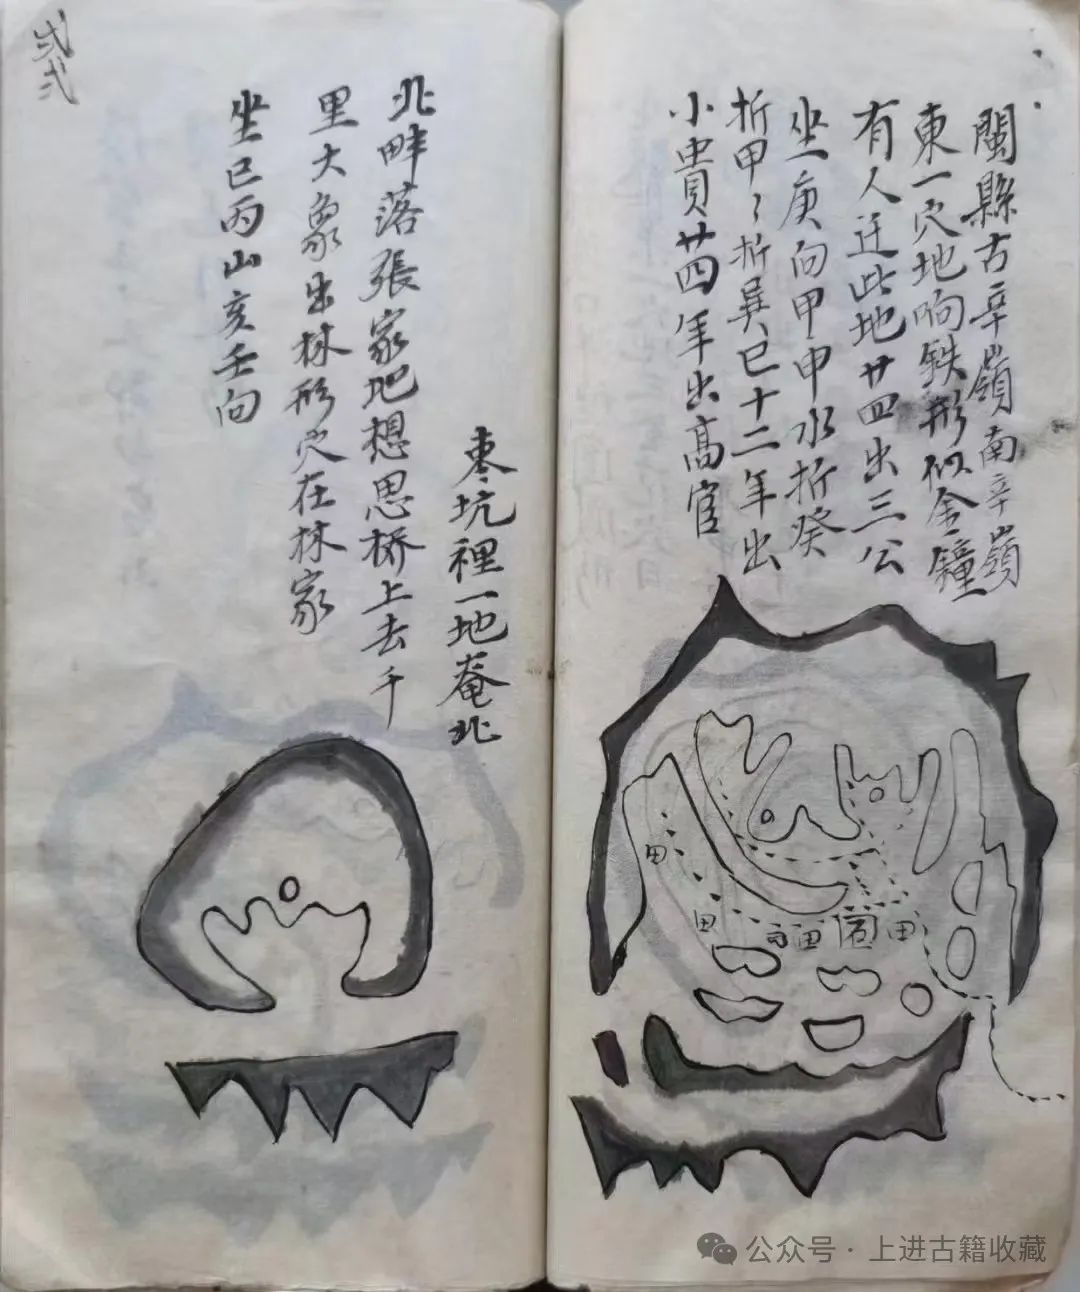 閩縣古辛嶺南辛嶺
東一穴地响鉄形似金鐘
有人迁此地廿四出三公
坐庚向甲申水折癸
折甲々折巽巳十二年出
小貴廿四年出高官
田
田
田
田
枣坑裡一地菴北
北畔落張家地想思桥上去千
里大象出林形穴在林家
坐巳丙山亥壬向
弍弍
公众号 · 上进古籍收藏